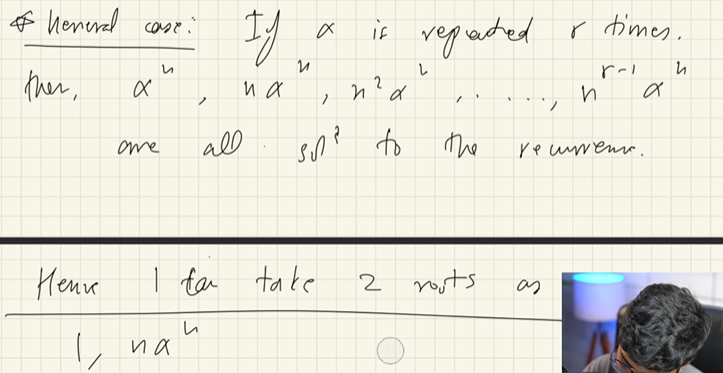 * General case: If α is repeated r times.
then, αⁿ, nαⁿ, n²αⁿ, . . . ., nʳ⁻¹ αⁿ
are all solⁿ to the recurrence.
Hence I can take 2 roots as
1, nαⁿ